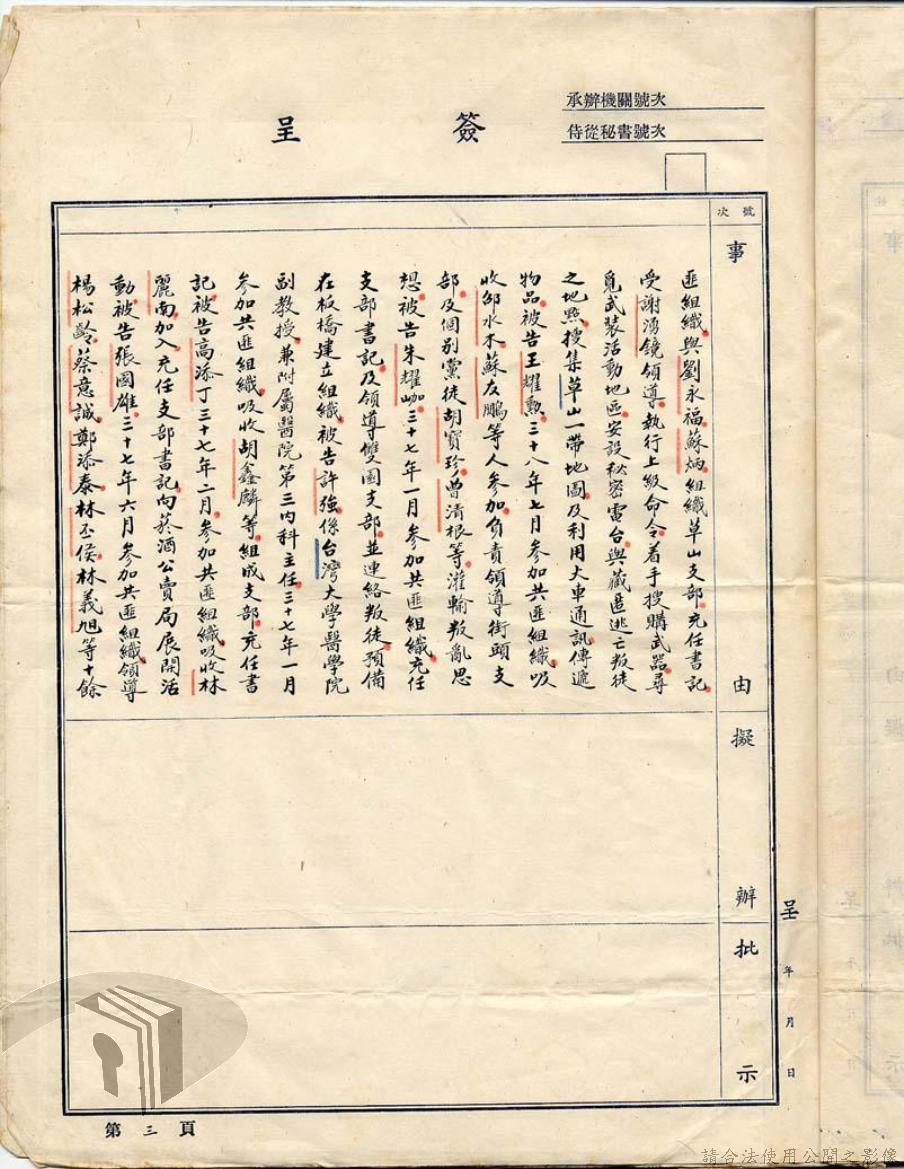 承辦機關號次
侍從秘書號次
簽呈
號次
事由
匪組織與劉永福蘇炳組織草山支部充任書記
受謝湧鏡領導執行上級命令着手搜購武器尋
覓武裝活動地區安設秘密電台與藏匿逃亡叛徒
之地點搜集草山一帶地圖及利用大車通訊傳遞
物品被告王耀勲三十八年七月參加共匪組織吸
收邱水木蘇友鵬等人參加負責領導街頭支
部及個別黨徒胡寶珍曾清根等灌輸叛亂思
想被告朱耀咖三十七年一月參加共匪組織充任
支部書記及領導雙園支部並連絡叛徒預備
在板橋建立組織被告許強係台灣大學醫學院
副教授兼附屬醫院第三內科主任三十七年一月
參加共匪組織吸收胡鑫麟等組成支部充任書
記被告高添丁三十七年二月參加共匪組織吸收林
麗南加入充任支部書記向菸酒公賣局展開活
動被告張國雄三十七年六月參加共匪組織領導
楊松齡蔡意誠鄭添泰林丕侯林義旭等十餘
擬辦
批示
呈 年 月 日
第三頁
請合法使用公開之影像